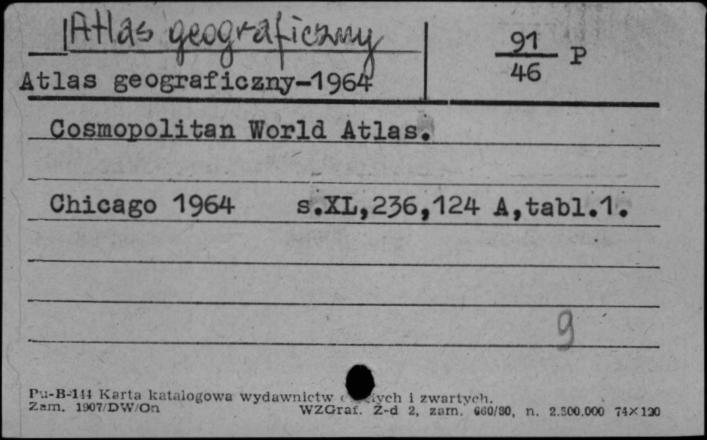 Atlas geograficzny
91
46 P
Atlas geograficzny-1964
Cosmopolitan World Atlas.
Chicago 1964 s.XL,236,124 A,tabl.1.
9
Pu-B-144 Karta katalogowa wydawnictw i zwartych.
Zam. 1907/DW/On WZGraf. Z-d 2, zam. 660/80, n. 2.500.000 74×120